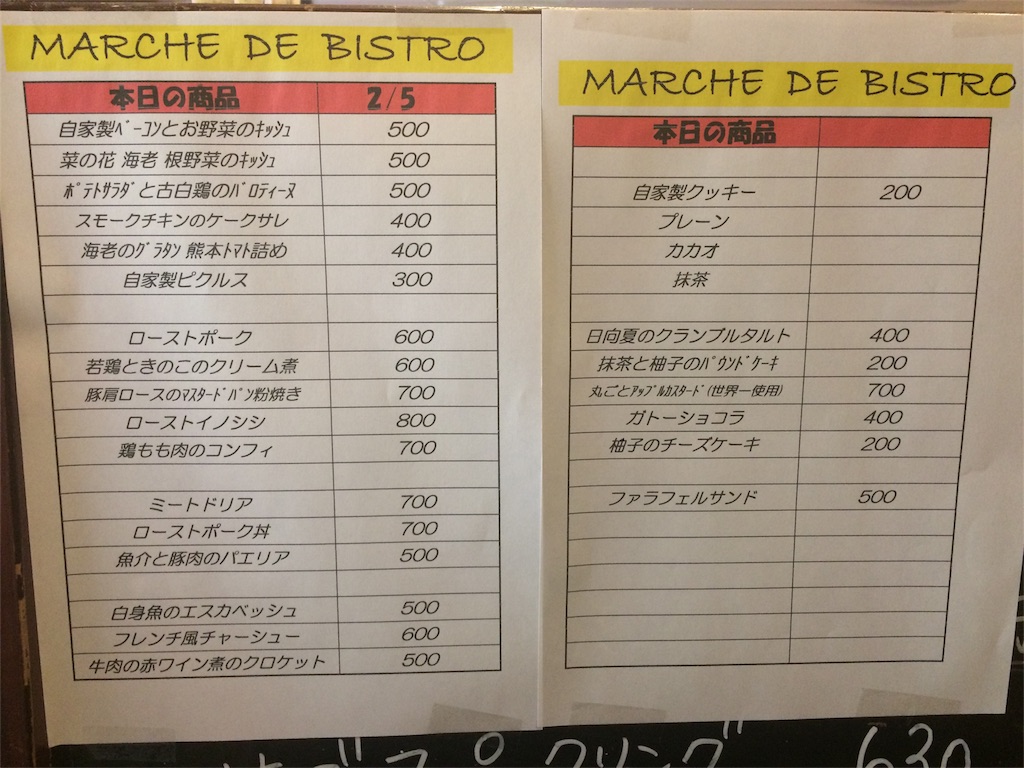 MARCHE DE BISTRO
本日の商品 2/5
自家製ﾍﾞｰｺﾝとお野菜のｷｯｼｭ 500
菜の花 海老 根野菜のｷｯｼｭ 500
ﾎﾟﾃﾄｻﾗﾀﾞと古白鶏のﾊﾞﾛﾃｨｰﾇ 500
スモークチキンのケークサレ 400
海老のｸﾞﾗﾀﾝ 熊本ﾄﾏﾄ詰め 400
自家製ピクルス 300
ローストポーク 600
若鶏ときのこのクリーム煮 600
豚肩ロースのﾏｽﾀｰﾄﾞﾊﾟﾝ粉焼き 700
ローストイノシシ 800
鶏もも肉のコンフィ 700
ミートドリア 700
ローストポーク丼 700
魚介と豚肉のパエリア 500
白身魚のエスカベッシュ 500
フレンチ風チャーシュー 600
牛肉の赤ワイン煮のクロケット 500
MARCHE DE BISTRO
本日の商品
自家製クッキー 200
プレーン
カカオ
抹茶
日向夏のクランブルタルト 400
抹茶と柚子のﾊﾟｳﾝﾄﾞｹｰｷ 200
丸ごとｱｯﾌﾟﾙｶｽﾀｰﾄﾞ(世界一使用) 700
ガトーショコラ 400
柚子のチーズケーキ 200
ファラフェルサンド 500
スパークリング 630